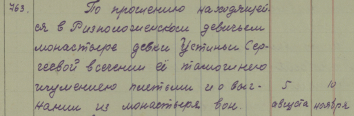 763. По прошению находящей-
ся в Ризположенском девичьем
монастыре девки Устиньи Сер-
геевой в сечении её тамошнею
игуменею плетьми и о выг-
нании из монастыря вон.
5 августа
10 ноября